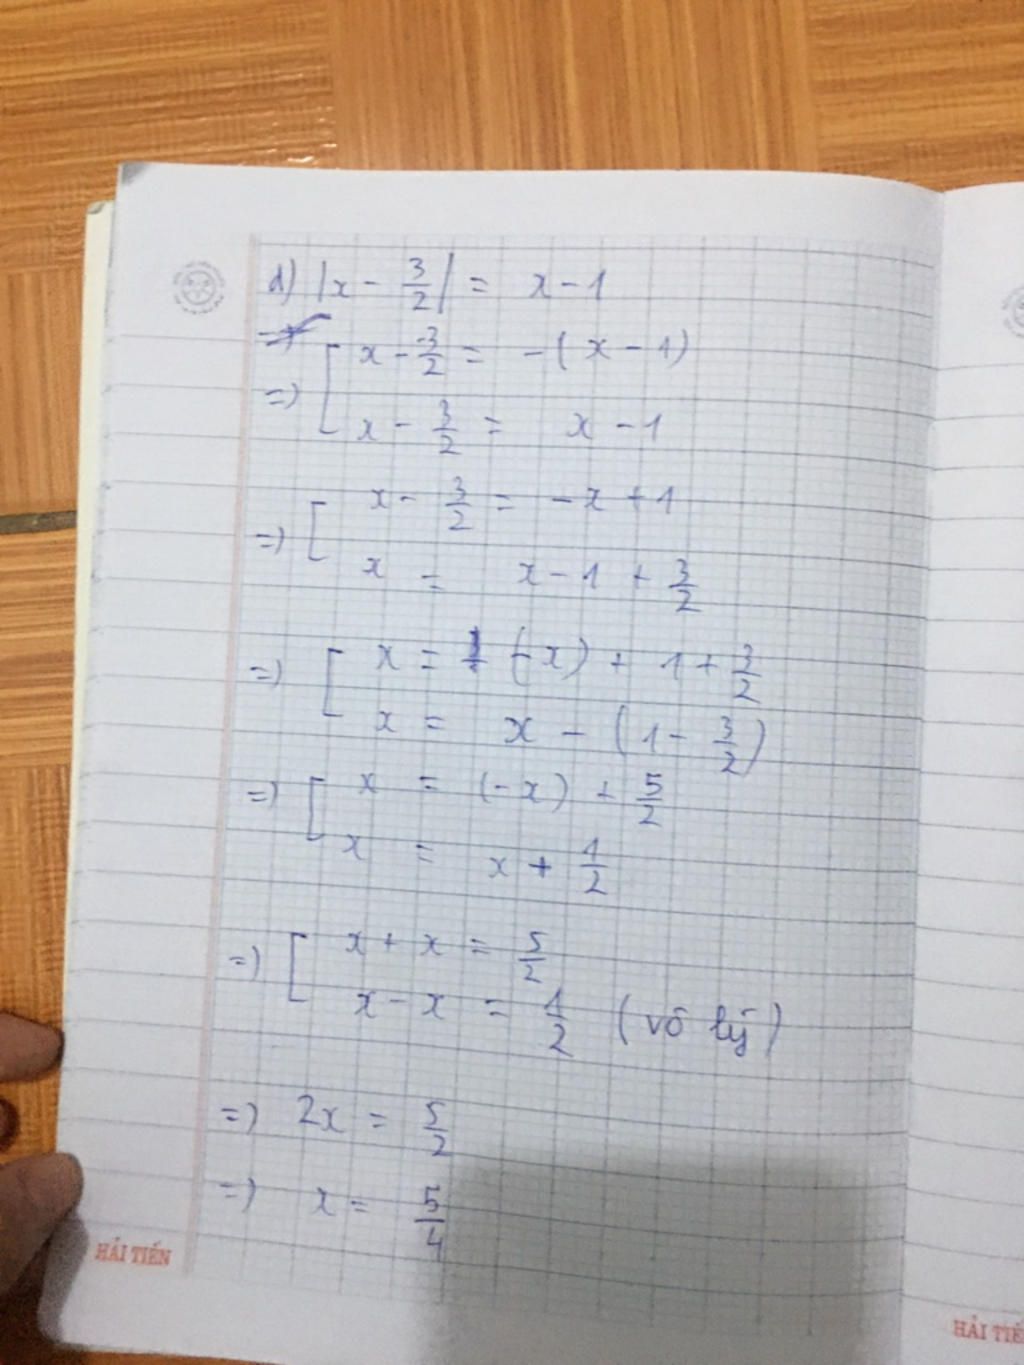 d) |x - 3/2| = x - 1
=> [ x - 3/2 = - ( x - 1 )
x - 3/2 = x - 1
=> [ x - 3/2 = - x + 1
x = x - 1 + 3/2
=> [ x = (- x) + 1 + 3/2
x = x - (1 - 3/2)
=> [ x = (- x) + 5/2
x = x + 1/2
=> [ x + x = 5/2
x - x = 1/2 ( vô lý )
=> 2x = 5/2
=> x = 5/4
HẢI TIẾN
HẢI TIẾ